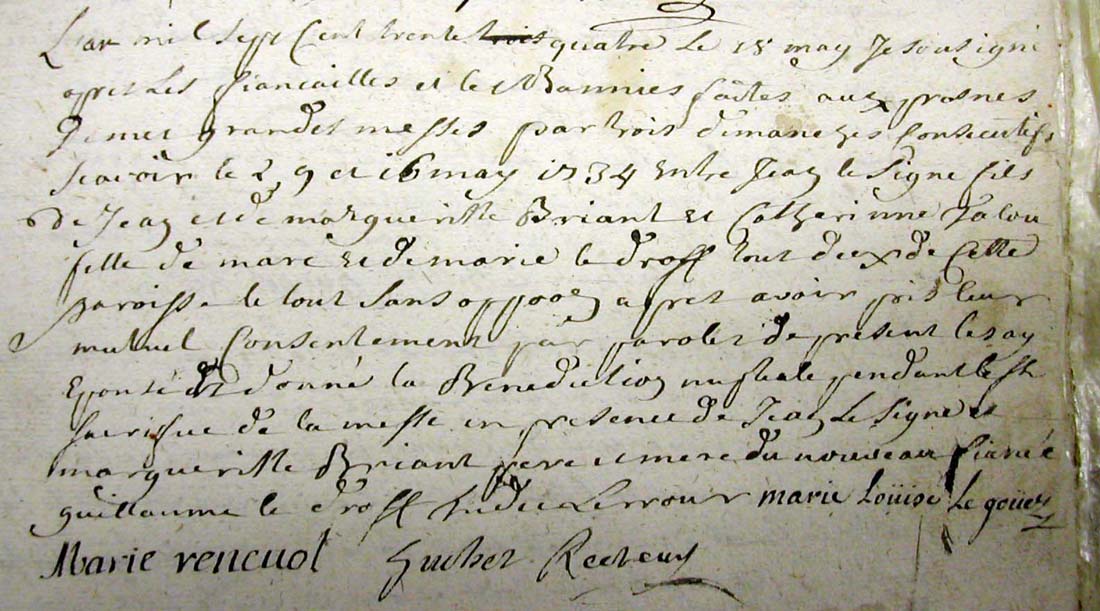 L'an mil sept Cent trente trois quatre Le 18 may Je sousigné
apres Les fiancailles et les Bannies faites aux prosnes
de mes grandes messes par trois dimanches Consecutifs
scavoir le 2, 9 et 16 may 1734 entre Jean le Signe fils
de Jean et de margueritte Briant et Catherinne Talou
fille de marc et de marie le droff tout deux de Cette
paroisse le tout sans oppoon apres avoir pris leur
mutuel Consentement par paroles de present les ay
Epousé et donné la Benediction nuptiale pendant le st
sacrifice de la messe en presence de Jean Le Signe et
margueritte Briant pere et mere du nouveau fiancé
guillaume le droff marie Loüise Le goüez
Marie rencuol Recteur